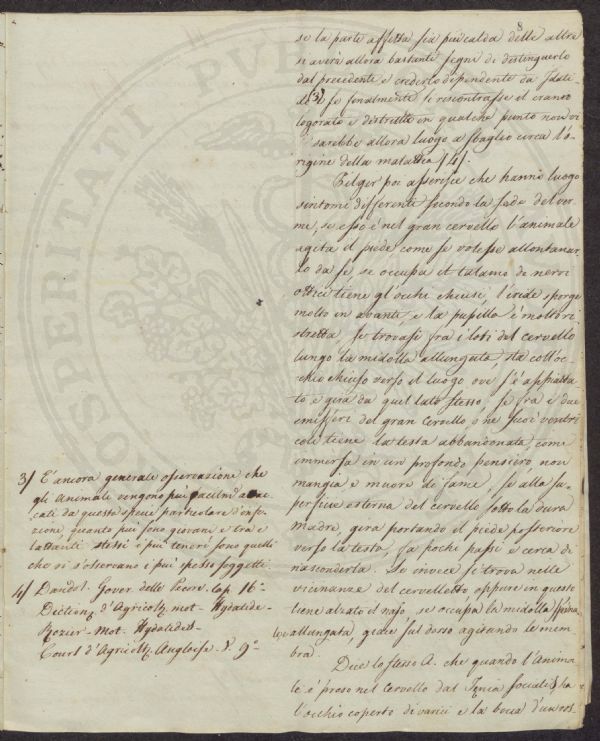 8
se la parte affetta sia piu calda delle altre
si averà allora bastante segni di distinguerlo
dal precedente e crederlo dipendente da Idati-
de 3/ se finalmente si rescontrasse il cranio
logorato e distrutto in qualche punto non vi
sarebbe allora luogo a sbaglio circa l'o-
rigine della malattia /4/.
Pilger poi asserisce che hanno luogo
sintomi differenti secondo la sede del ver
me, se esso é nel gran cervello l'animale
agita il piede come se volesse allontanar
lo da se, se occupa il talamo de nervi
ottici tiene gl'occhi chiusi, l'iride sporge
molto in avanti, e la pupilla é molto ri
stretta, se trovasi fra i lobi del cervello
lungo la midolla allungata, sta coll'oc-
chio chiuso verso il luogo ove s'é appiatta
to e gira da quel lato stesso, se fra e due
emisferi del gran cervello o ne suoi ventri
coli tiene la testa abbandonata, come
immersa in un profondo pensiero, non
mangia e muore di fame, se alla su-
perficie esterna del cervello sotto la dura
madre, gira portando il piede posteriore
verso la testa, fa pochi passi e cerca di
nasconderla. Se invece si trova nelle
vicinanze del cervelletto oppure in questo
tiene alzato il naso, se occupa la midolla spinale
allungata giace sul dorso agitando le mem
bra.
Dice lo stesso A. che quando l'Anima
le é preso nel Cervello dal Tenia sociale ha
l'occhio coperto di varici e la bocca d'un ros
3/ E' ancora generale osservazione che
gli Animale vengono piu facilmente attac
cati da questa specie particolare d'infe
zione quanto piu sono giovani e tra e
lattanti stessi i piu teneri sono quelli
che vi s'osservano i piu spesso soggetti.
4/ Dandol. Gover. delle Pecore. Cap 16-
Dictionz d'Agricolt. mot- Hydatide-
Rozier- Mot. Hydatides-
Cours d'Agricolt. Angloise. T. 9°-